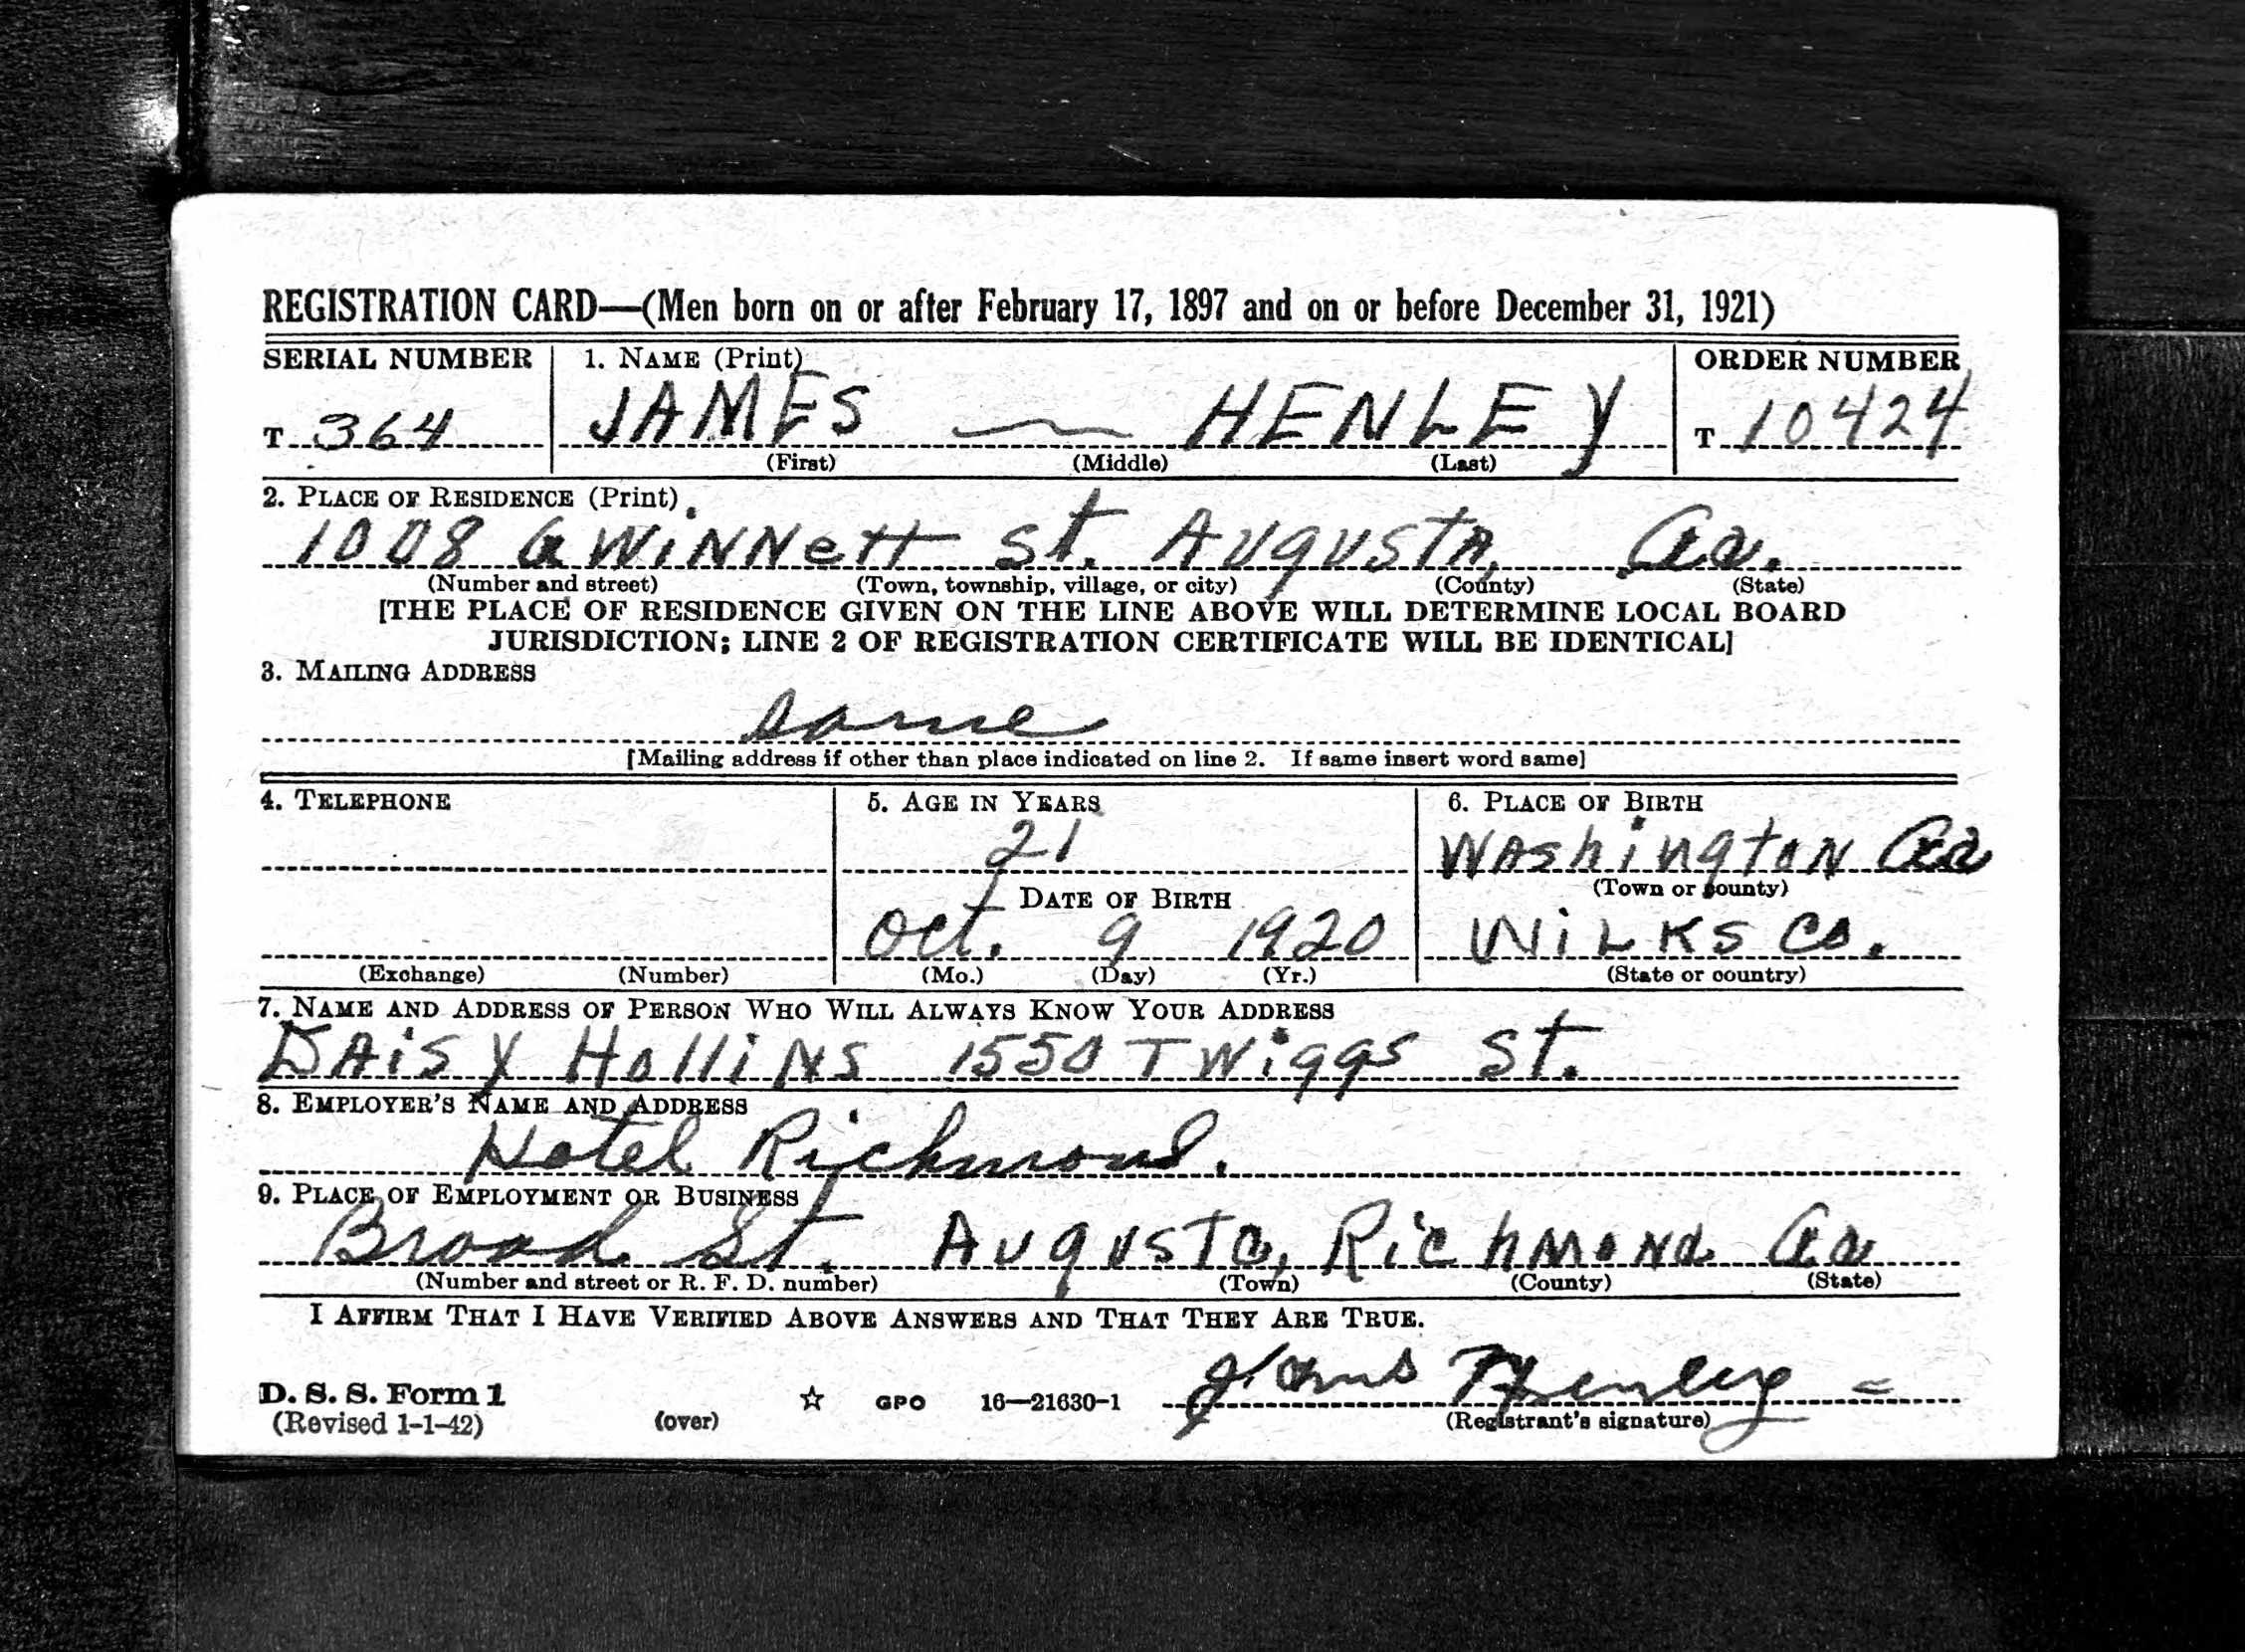 REGISTRATION CARD—(Men born on or after February 17, 1897 and on or before December 31, 1921)
SERIAL NUMBER 1. NAME (Print) ORDER NUMBER
T 364 JAMES — HENLEY T 10424
(First) (Middle) (Last)
2. PLACE OF RESIDENCE (Print)
1008 GWINNett St. AUgUSTA, Ga.
(Number and street) (Town, township, village, or city) (County) (State)
[THE PLACE OF RESIDENCE GIVEN ON THE LINE ABOVE WILL DETERMINE LOCAL BOARD
JURISDICTION; LINE 2 OF REGISTRATION CERTIFICATE WILL BE IDENTICAL]
3. MAILING ADDRESS
Same
[Mailing address if other than place indicated on line 2. If same insert word same]
4. TELEPHONE 5. AGE IN YEARS 6. PLACE OF BIRTH
21 WAshington Ga
DATE OF BIRTH (Town or county)
Oct. 9 1920 WiLKS CO.
(Exchange) (Number) (Mo.) (Day) (Yr.) (State or country)
7. NAME AND ADDRESS OF PERSON WHO WILL ALWAYS KNOW YOUR ADDRESS
DAiSY HolliNS 1550 TWiggs St.
8. EMPLOYER'S NAME AND ADDRESS
Hotel Richmond.
9. PLACE OF EMPLOYMENT OR BUSINESS
Broad St. AUgUSTa, RichMoNd Ga
(Number and street or R. F. D. number) (Town) (County) (State)
I AFFIRM THAT I HAVE VERIFIED ABOVE ANSWERS AND THAT THEY ARE TRUE.
James Henley
D. S. S. Form 1 ☆ GPO 16—21630-1
(Revised 1-1-42) (over) (Registrant's signature)